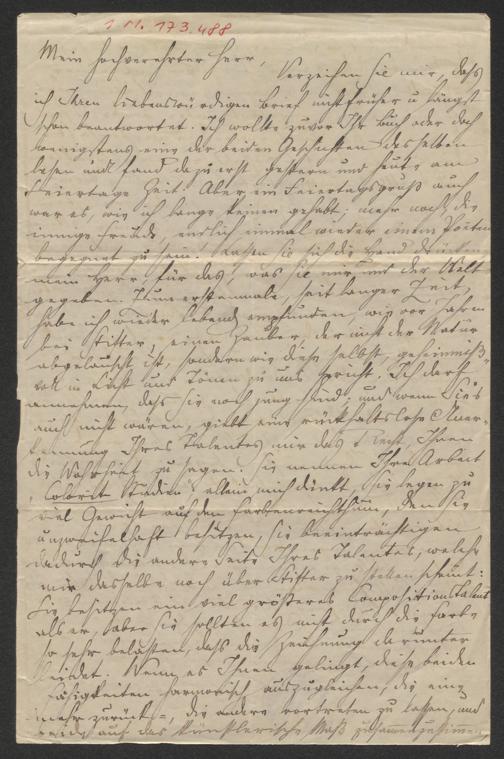 1 N. 173.488
Mein hochverehrter Herr,
Verzeihen Sie mir, daß
ich Ihren liebenswürdigen Brief nicht früher u längst
schon beantwortet. Ich wollte zuvor Ihr Buch oder doch
wenigstens eine der beiden Geschichten desselben
lesen und fand dazu erst gestern und heute am
Feiertage Zeit. Aber ein Feiertagsgruß auch
war es, wie ich lange keinen gehabt; mehr noch, die
innige Freude, endlich einmal wieder einem Poeten
begegnet zu sein. Lassen Sie sich die Hand drücken
mein Herr, für das, was Sie mir und der Welt
gegeben. Zum erstenmale, seit langer Zeit,
habe ich wieder lebend empfunden, wie vor Jahren
bei Stifter, einen Zauber, der nicht der Natur
abgelauscht ist, sondern wie diese selbst, geheimniß-
voll in Licht und Tönen zu uns spricht. Ich darf
annehmen, daß Sie noch jung sind; und wenn Sie's
auch nicht wären, giebt eine rückhaltslose Aner-
kennung Ihres Talentes mir das Recht, Ihnen
die Wahrheit zu sagen. Sie nennen Ihre Arbeit
"Colorit Studien" allein mich dünkt, Sie legen zu
viel Gewicht auf den Farbenreichthum, den Sie
unzweifelhaft besitzen, Sie beeinträchtigen
dadurch die andere Seite Ihres Talentes, welche
mir dasselbe noch über Stifter zu stellen scheint:
Sie besitzen ein viel größeres Compositionstalent
als er, aber Sie sollten es nicht durch die Farbe
so sehr belasten, daß die Zeichnung darunter
leidet. Wenn es Ihnen gelingt, diese beiden
Fähigkeiten harmonisch auszugleichen, die eine
mehr zurück-, die andere vortreten zu lassen, und
beide auf das künstlerische Maß zusammenzustimmen